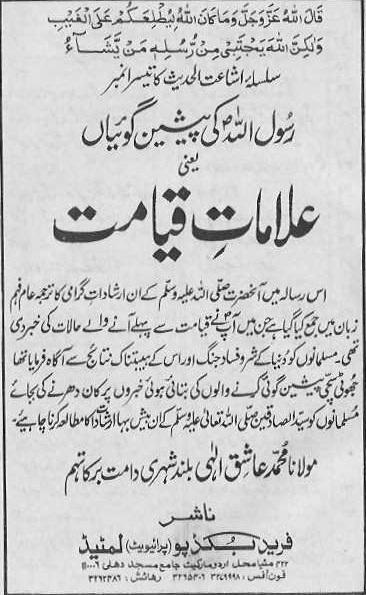 قَالَ اللهُ عَزَّوَجَلَّ وَمَا كَانَ اللهُ لِيُطْلِعَكُمْ عَلَى الْغَيْبِ
وَلٰكِنَّ اللهَ يَجْتَبِىْ مِنْ رُّسُلِهٖ مَنْ يَّشَآءُ
سلسلۂ اشاعت الحدیث کا تیسرا نمبر
رسول اللہؐ کی پیشین گوئیاں
یعنی
علاماتِ قیامت
اس رسالہ میں آنحضرت صلّی اللہ علیہ وسلّم کے ان ارشاداتِ گرامی کا ترجمہ عام فہم
زبان میں جمع کیا گیا ہے جن میں آپؐ نے قیامت سے پہلے آنے والے حالات کی خبر دی
تھی۔ مسلمانوں کو دُنیا کے شر و فساد جنگ اور اس کے ہیبتناک نتائج سے آگاہ فرمایا تھا
جھوٹی سچی پیشین گوئی کرنے والوں کی بتائی ہوئی خبروں پر کان دھرنے کی بجائے
مُسلمانوں کو سیّد الصادقین صلّی اللہ تعالیٰ علیہ وسلّم کے ان بیش بہا ارشادات کا مطالعہ کرنا چاہیئے۔
مولانا محمد عاشق الٰہی بلند شہری دامت برکاتہم
ناشر
فرید بُکڈپو (پرائیویٹ) لمٹیڈ
۴۲۲ مٹیا محل اردو مارکیٹ جامع مسجد دھلی ۱۱۰۰۰۶
فون آفس: ۳۲۷۹۹۹۸ ۳۲۶۵۴۰۶ رھائش: ۳۲۶۲۴۸۶